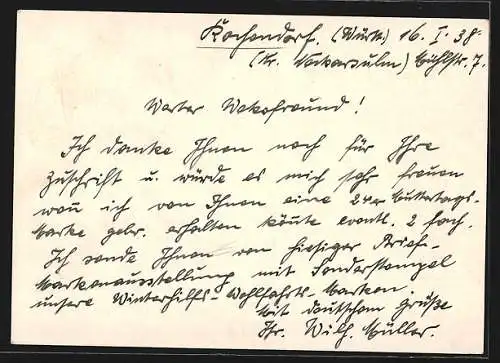 Kochendorf. (Württ.) 16. I. 38.
(Kr. Neckarsulm) Mühlstr. 7.
Werter Wekafreund!
Ich danke Ihnen noch für Ihre
Zuschrift u. würde es mich sehr freuen
wen ich von Ihnen eine 24er Muttertags-
Marke gebr. erhalten könte eventl. 2 fach.
Ich sende Ihnen von hiesiger Brief-
Markenausstellung mit Sonderstempel
unsere Winterhilfs-Wohlfahrts-Marken.
Mit deutschem Grüße
Ihr. Wilh. Müller.